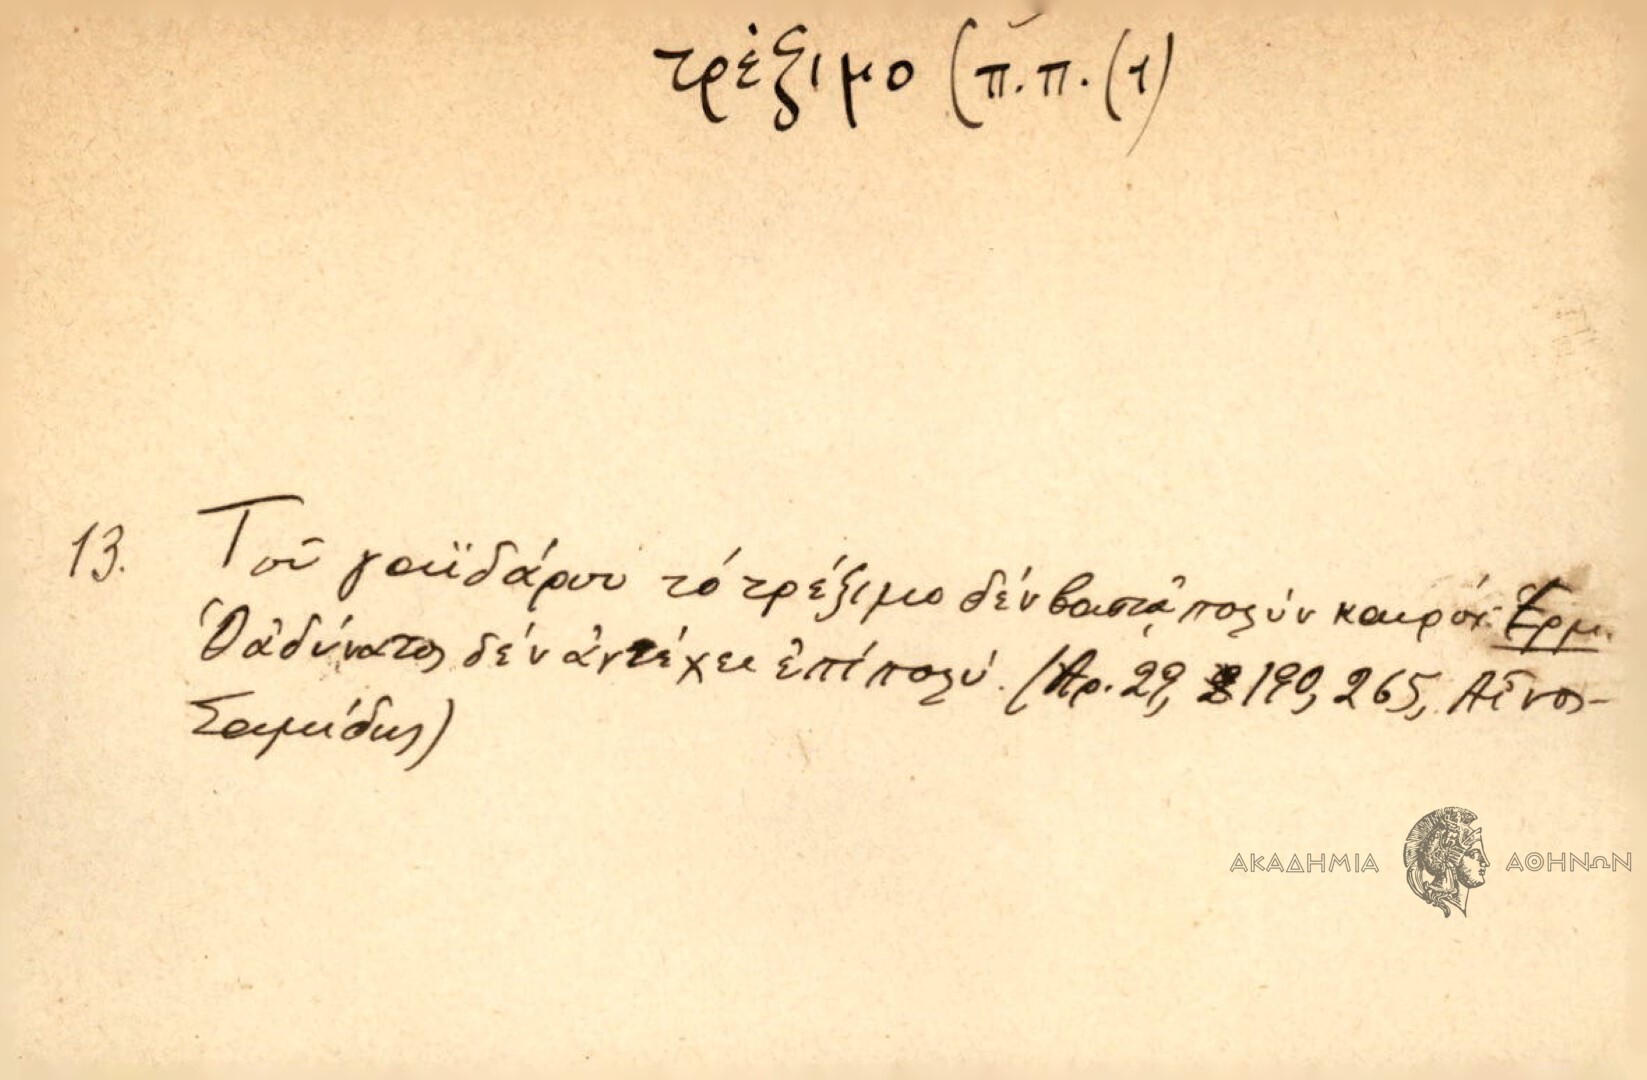 τρέξιμο (π.π. (1)
13. Τοῦ γαϊδάρου τό τρέξιμο δέν βαστᾷ πολύν καιρόν Ἑρμ.
Ὁ ἀδύνατος δέν ἀντέχει ἐπί πολύ. (Αρ. 29, 190, 265, Αἶνος-
Σαμίδης)
ΑΚΑΔΗΜΙΑ ΑΘΗΝΩΝ